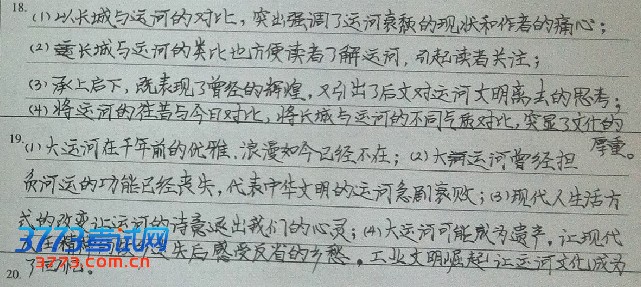 18.
(1)以长城与运河的对比，突出强调了运河衰颓的现状和作者的痛心；
(2)长城与运河的类比也方便读者了解运河，引起读者关注；
(3)承上启下，既表现了曾经的辉煌，又引出了后文对运河文明离去的思考；
(4)将运河的往昔与今日对比，将长城与运河的不同气质对比，突显了文化的
厚重。
19.(1)大运河在千年前的优雅、浪漫如今已经不在；(2)大运河曾经担
负河运的功能已经丧失，代表中华文明的运河急剧衰败；(3)现代人生活方
式的改变让运河的诗意退出我们的心灵；(4)大运河可能成为遗产，让现代
人在精神 失后感受反省的乡愁。工业文明崛起让运河文化成为
3773考试网
www.3773.com.cn
20.了回忆。